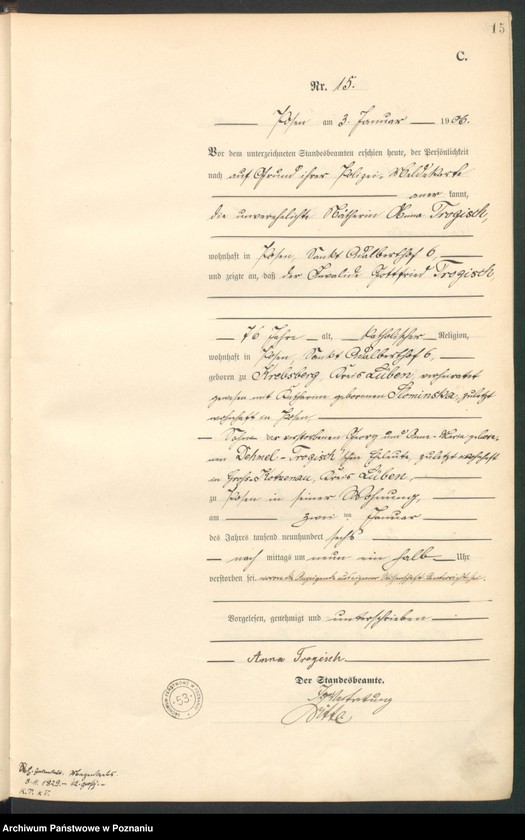 15
C.
Nr. 15.
Posen am 3. Januar 1906.
Vor dem unterzeichneten Standesbeamten erschien heute, der Persönlichkeit
nach auf Grund ihrer Polizei-Meldekarte
anerkannt,
die unverehelichte Näherin Anna Trogisch,
wohnhaft in Posen, Sankt Adalberthof 6,
und zeigte an, daß der Invalide Gottfried Trogisch,
76 Jahre alt, katholischer Religion,
wohnhaft in Posen, Sankt Adalberthof 6,
geboren zu Krebsberg, Kreis Lüben, verheiratet
gewesen mit Katharina geborenen Slominska, zuletzt
wohnhaft in Posen
Sohn der verstorbenen Georg und Anna-Maria gebore-
nen Dehnel-Trogisch'schen Eheleute, zuletzt wohnhaft
in Gross-Kotzenau, Kreis Lüben,
zu Posen in seiner Wohnung,
am zwei ten Januar
des Jahres tausend neunhundert sechs
nach mittags um neun ein halb Uhr
verstorben sei, wovon die Anzeigende aus eigener Wissenschaft unterrichtet sei.
Vorgelesen, genehmigt und unterschrieben
Anna Trogisch.
Der Standesbeamte.
In Vertretung
53
Archiwum Państwowe w Poznaniu